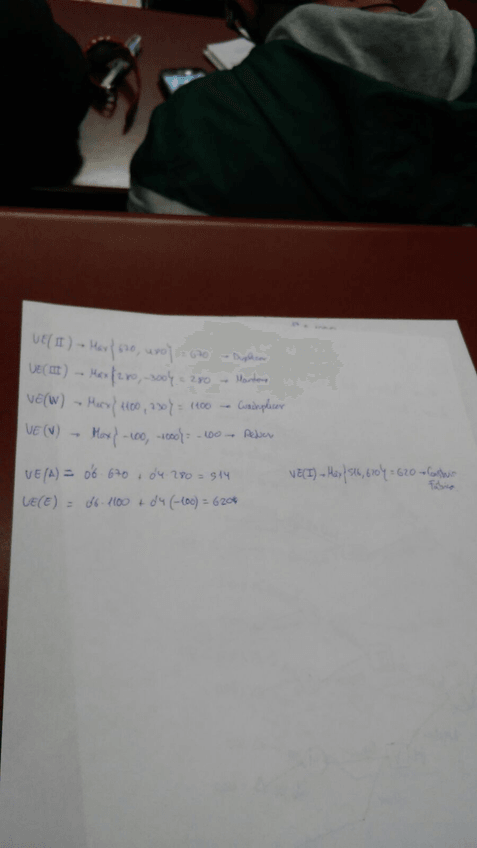 VE(II) → Max{670, 480} = 670 → Duplicar
VE(III) → Max{280, -300} = 280 → Mantener
VE(IV) → Max{1100, 230} = 1100 → Cuadruplicar
VE(V) → Max{-100, -1000} = -100 →
VE(A) = 0'6 670 + 0'4 280 = 514
VE(I) → Max{514, 620} = 620 →
VE(E) = 0'6 · 1100 + 0'4 (-100) = 620